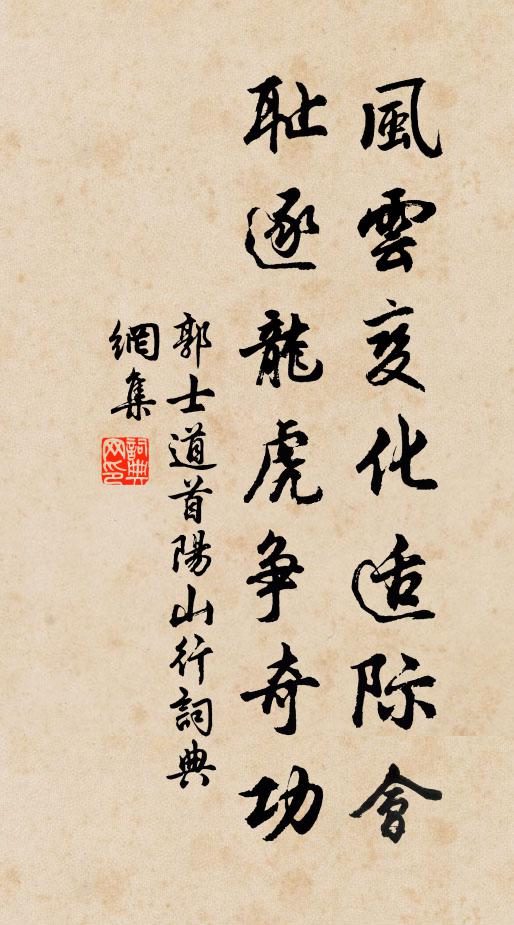 風雲变化适际會
耻逐龍虎争奇功
郭士道首陽山行詞典
網集
詞典网印